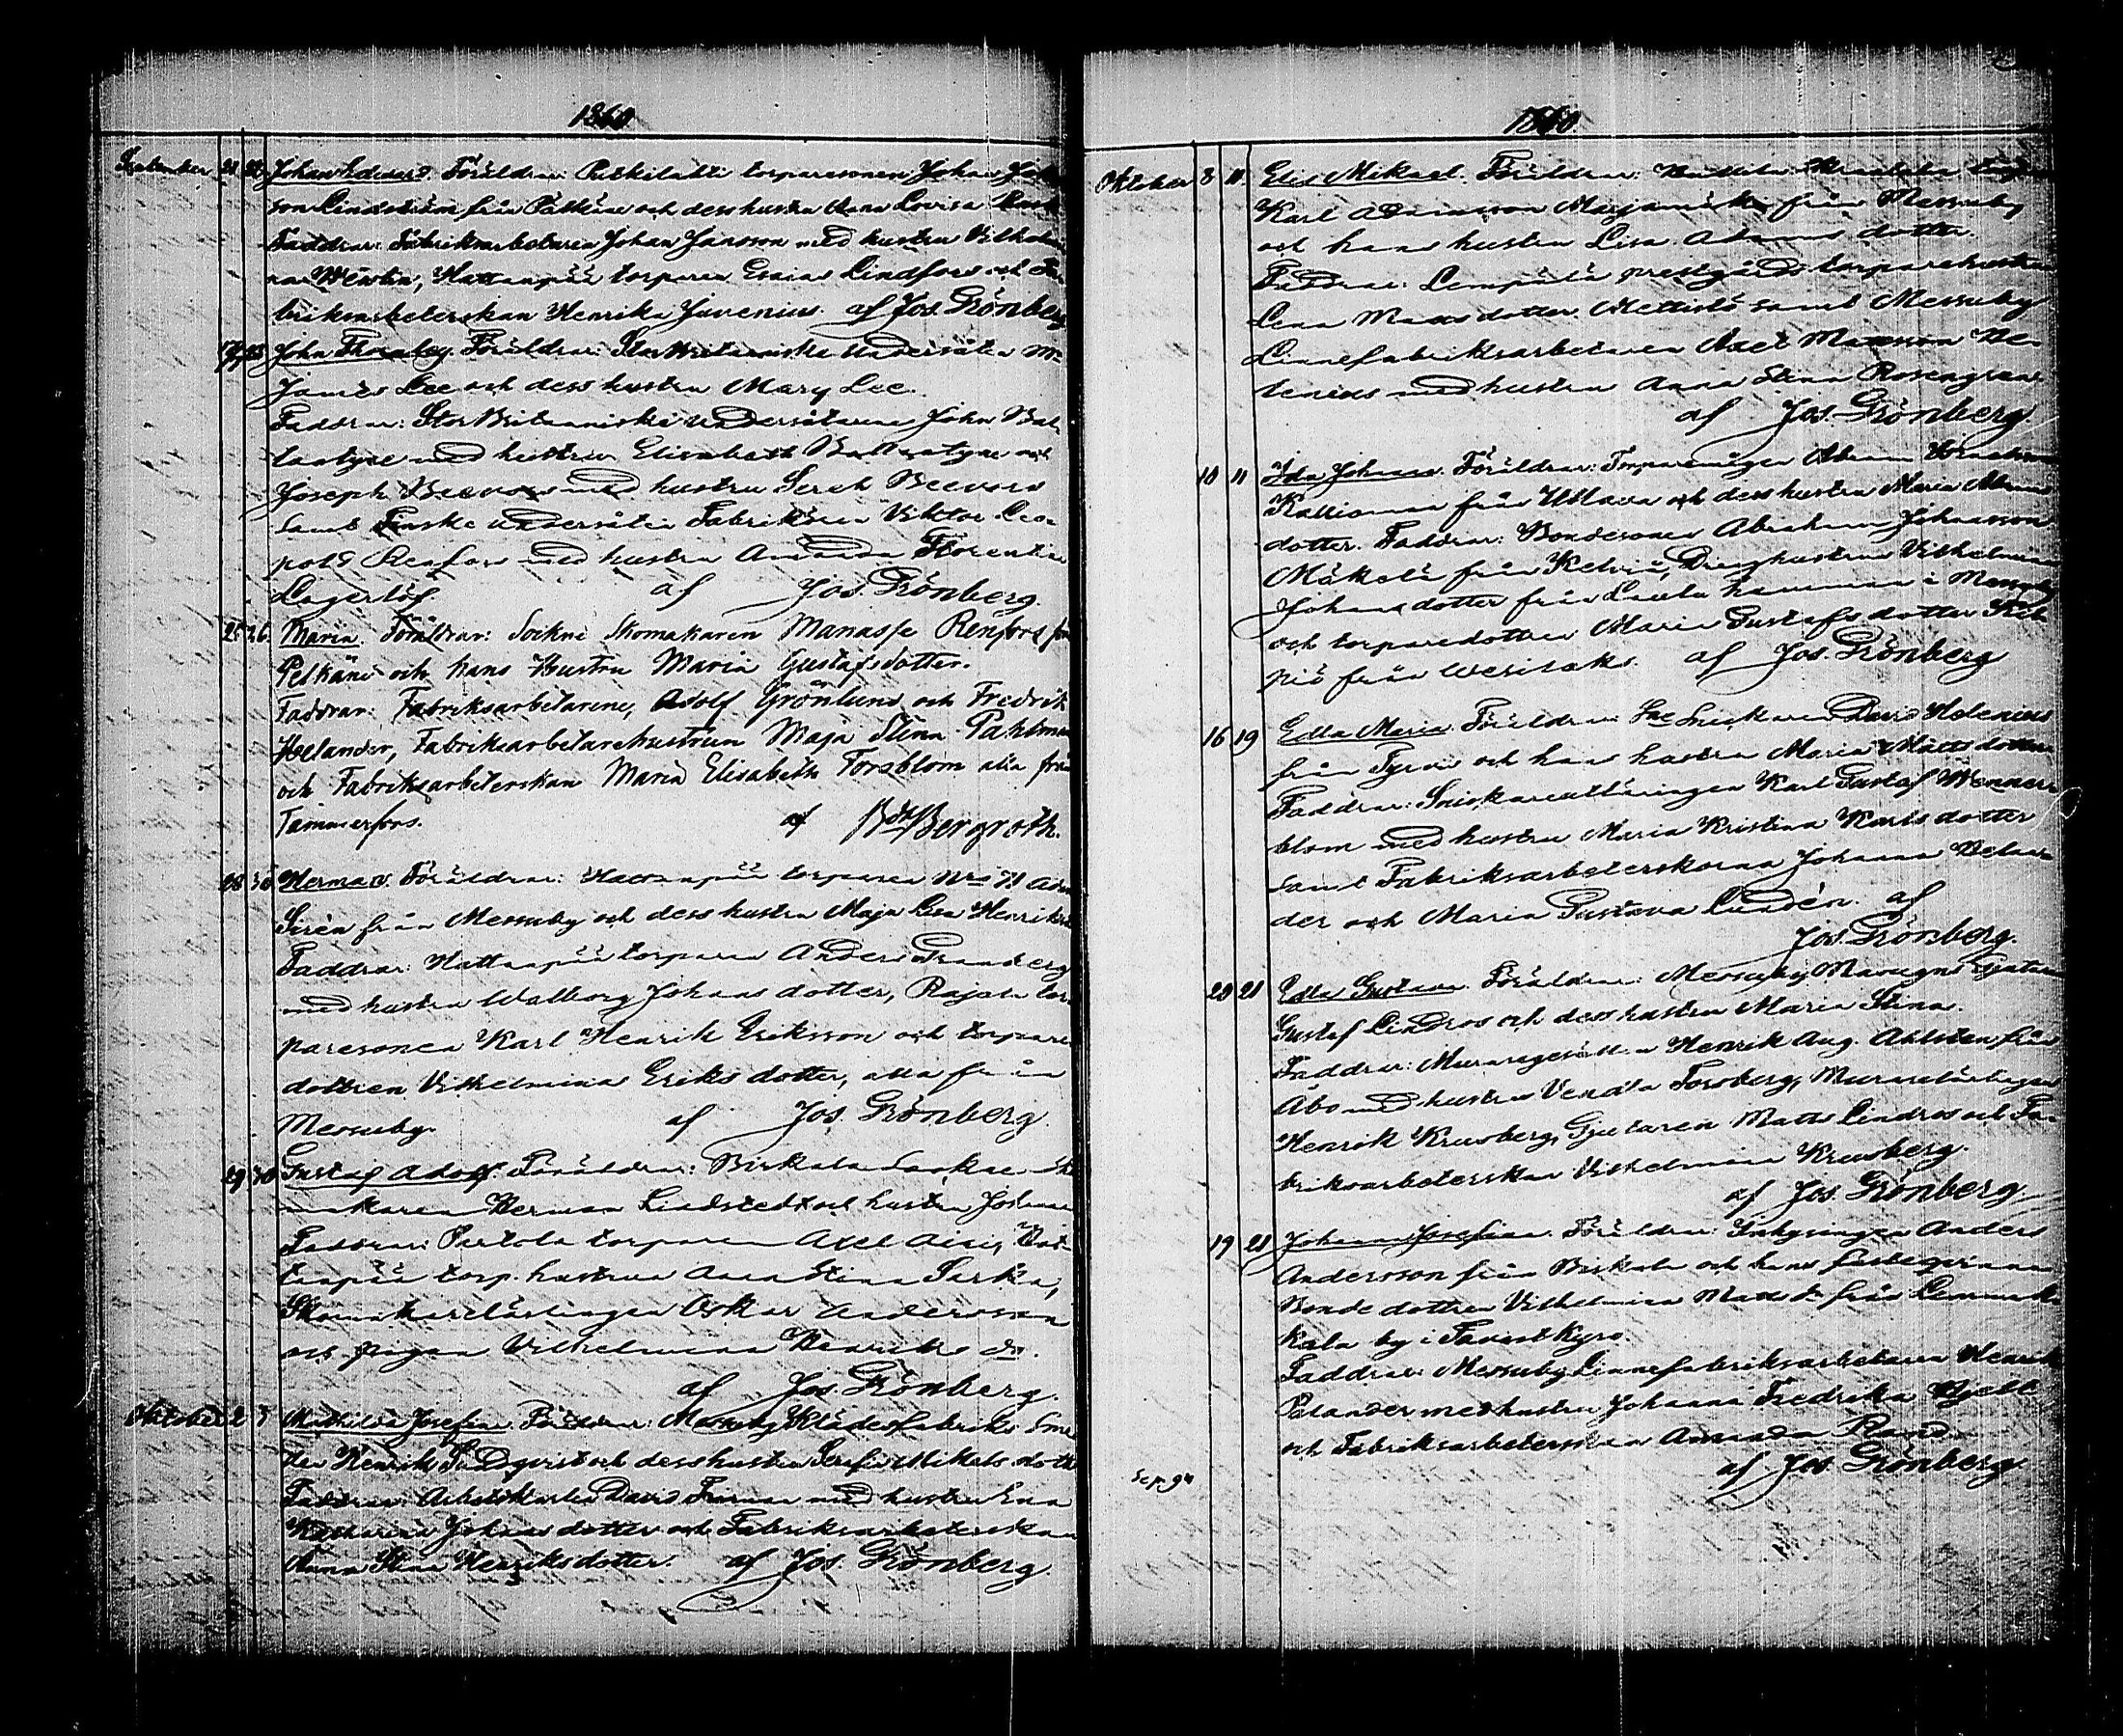 1860
September 21 22 Johan Edvard. Föräldrar: torparesonen Johan
son Lindström från Pälkäne och dess hustru Anna Lovisa
Faddrar: Fabriksarbetaren Johan Jansson med hustru Vilhelmi-
na Werlin, Hattanpää torparen Esaias Lindfors och Fa-
briksarbeterskan Henrika Juvenius. af Jos. Grönberg
John Thornley. Föräldrar: Stor Britanniske undersåten Mr
James Lee och dess hustru Mary Lee.
Faddrar: Stor Britanniske undersåtarne John Bal-
lantyne med hustru Elisabeth Ballantyne och
Joseph Beevors med hustru Sarah Beevors
samt Finske undersåten Fabrikören Viktor Leo-
pold med hustru Amanda Florentin
Lagerlöf af Jos. Grönberg.
25 26 Maria. Föräldrar: Sockne Skomakaren Manasse Renfors från
Pelkäne och hans Hustru Maria Gustafsdotter.
Faddrar: Fabriksarbetarene, Adolf Grönlund och Fredrik
Helander, Fabriksarbetarehustrun Maja Stina Pahlman
och Fabriksarbeterskan Maria Elisabeth Forsblom alla från
Tammerfors. af Bergroth.
28 30 Herman. Föräldrar: Hattanpää torparen Nro 71 Adam
Sirén från Messuby och dess hustru Maja Lisa Henriksd.
Faddrar: Hattanpää torparen Anders Grandberg
med hustru Walborg Johans dotter, Rajala tor-
paresonen Karl Henrik Eriksson och torpare
dottren Vilhelmina Eriks dotter, alla från
Messuby. af Jos. Grönberg.
29 30 Gustaf Adolf. Föräldrar: Birkala Sockne Sko-
makaren Herman Lindstedt och hustru Johanna
Faddrar: Pertola torparen Axel Hat-
tanpää torp. hustrun Anna Stina Sarka,
Skomakarelärlingen Oskar Andersson
och pigan Vilhelmina Henriks dr.
af Jos. Grönberg.
Oktober 2 3 Mathilda Josefina. Föräldrar: Messuby Klädesfabriks Sme-
den Henrik Sundqvist och dess hustru Serafia Mikels dott.
Faddrar: Arbetskarlen David Friman med hustru Eva
Katharina Johans dotter och Fabriksarbeterskan
Anna Stina Henriksdotter. af Jos. Grönberg
1860
Oktober 8 11 Elis Mikael. Föräldrar:
Karl Adamsson Marjamäki från Messuby
och hans hustru Lisa Adams dotter.
Faddrar: Lempälä prestgårds torparehustrun
Lena Matts dotter Mettistö samt Messuby
Linnefabriksarbetaren Axel Mattsson He-
lenius med hustru Anna Stina Rosengren.
af Jos. Grönberg
10 11 Ida Johanna. Föräldrar: Torparemågen Abram
Kallioman från Ullava och dess hustru Maria
dotter. Faddrar: Bondesonen Abraham Johansson
Mäkelä från Kelviå, Drenghustrun Vilhelmina
Johans dotter från Laula hemman i Messuby
och torparedottren Maria Gustafs dotter
från Wesilaks. af Jos. Grönberg
16 19 Edla Maria. Föräldrar: Sne Snickaren David Helenius
från Tyrvis och hans hustru Maria Matts dotter
Faddrar: Snickarelärlingen Karl Gustaf Wenner-
blom med hustru Maria Kristina Karls dotter
samt Fabriksarbeterskorna Johanna Helan-
der och Maria Gustava Lundén. af
Jos. Grönberg.
20 21 Edla Gustava. Föräldrar: Messuby Masugns Gjutaren
Gustaf Lindros och dess hustru Maria Stina.
Faddrar: Muraregesällen Henrik Aug. Ahlsten från
Åbo med hustru Vendla Forsberg, Murarelärlingen
Henrik Kreusberg, Gjutaren Matts Lindros och Fa-
briksarbeterskan Vilhelmina Kreusberg.
af Jos. Grönberg
19 21 Johanna Josefina. Föräldrar: Inhysingen Anders
Andersson från Birkala och hans fästeqvinna
Bonde dottren Vilhelmina Matts dr från Lemma-
kala by i Tavastkyro.
Faddrar: Messuby Linnefabriksarbetaren Henrik
Palander med hustru Johanna Fredrika Hjelt
och Fabriksarbeterskan Amanda Rand
af Jos. Grönberg.